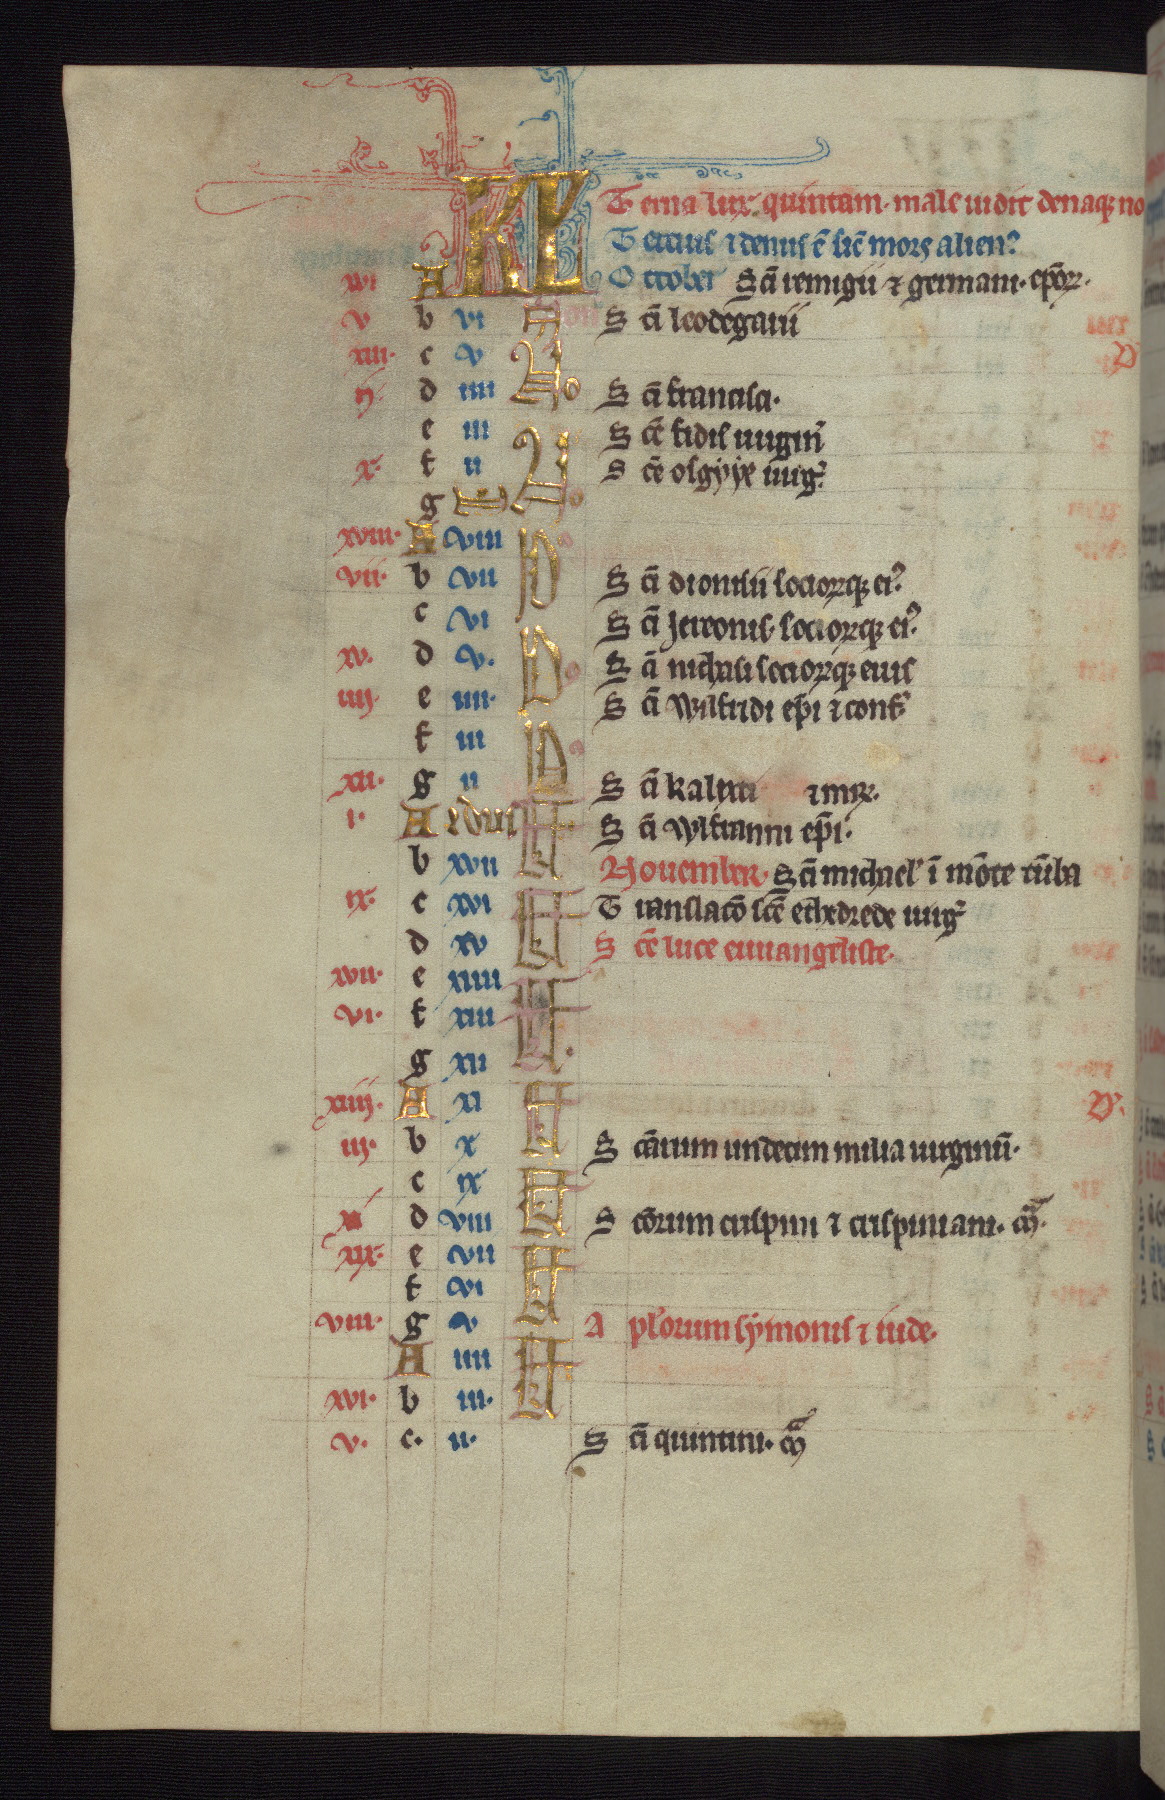 KL T erna lux quintam. male uidit denaq; no
T ercius ⁊ denus ē sic̄ mors alien᾽
xvi A O ctober S c̄i remigii ⁊ germani. ep̄oꝝ.
v b vi N S c̄i leodegarii
xiii. c v N o
ii d iiii S c̄i francisci.
e iii N S c̄e fidis uirgin̄
x. f ii o S c̄e osgyþe uirg᾽
g
xviii. A viii
vii. b vii S c̄i dionisii socioꝝq; ei᾽
c vi S c̄i socioꝝq; ei᾽.
xv. d v. S c̄i nichasii socioꝝq; eius
iiii. e iiii. S c̄i Wilfridi ep̄i ⁊ conf᾽
f iii
xii. g ii S c̄i kalixti ⁊ mr̄.
i. A Idus S c̄i Wlfranni ep̄i.
b xvii Nouember. S c̄i michael᾽ ī mōte tūba
ix. c xvi T ranslacō sc̄e etheldrede uirg᾽
d xv S c̄e luce euuangeliste.
xvii. e xiiii
vi. f xiii
g xii
xiiii. A xi
iii. b x S c̄arum undecim milia uirginū.
c ix
xi d viii S c̄orum crispini ⁊ crispiniani. m̄.
xix. e vii
f vi
viii. g v A pl᾽orum symonis ⁊ iude.
A iiii
xvi. b iii.
v. c. ii. S c̄i quintini. m̄